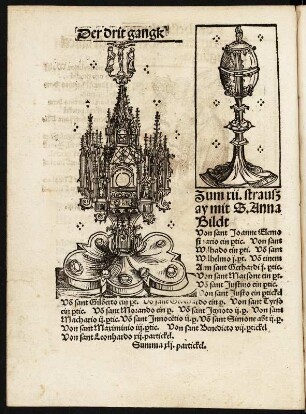 Der drit gangk
Zum xii. strauß
ay mit S. Anna
Bildt
Von sant Joanne Elemo
ptic. Von sant
ein ptic. Von sant
Wilhelmo j. ptic. Võ einem
Arm sant Gerhardi j. ptic.
Von sant Massone ein ptic.
Võ sant Justino ein ptic.
Von sant Justo ein ptickel
Võ sant Gilberto ein ptic. Võ sant ein ptic. Võ sant Tyrso
ein ptic. Võ sant Morando ein ptic. Võ sant ij. ptic. Von sant
Machario ij. ptic. Võ sant Innocẽtio ij. Võ sant Simone ij.
Von sant Maximinio iij. ptic. Von sant Benedicto vij. ptickel
Von sant Leonhardo xij. partickel.
Summa xlj. partickel.